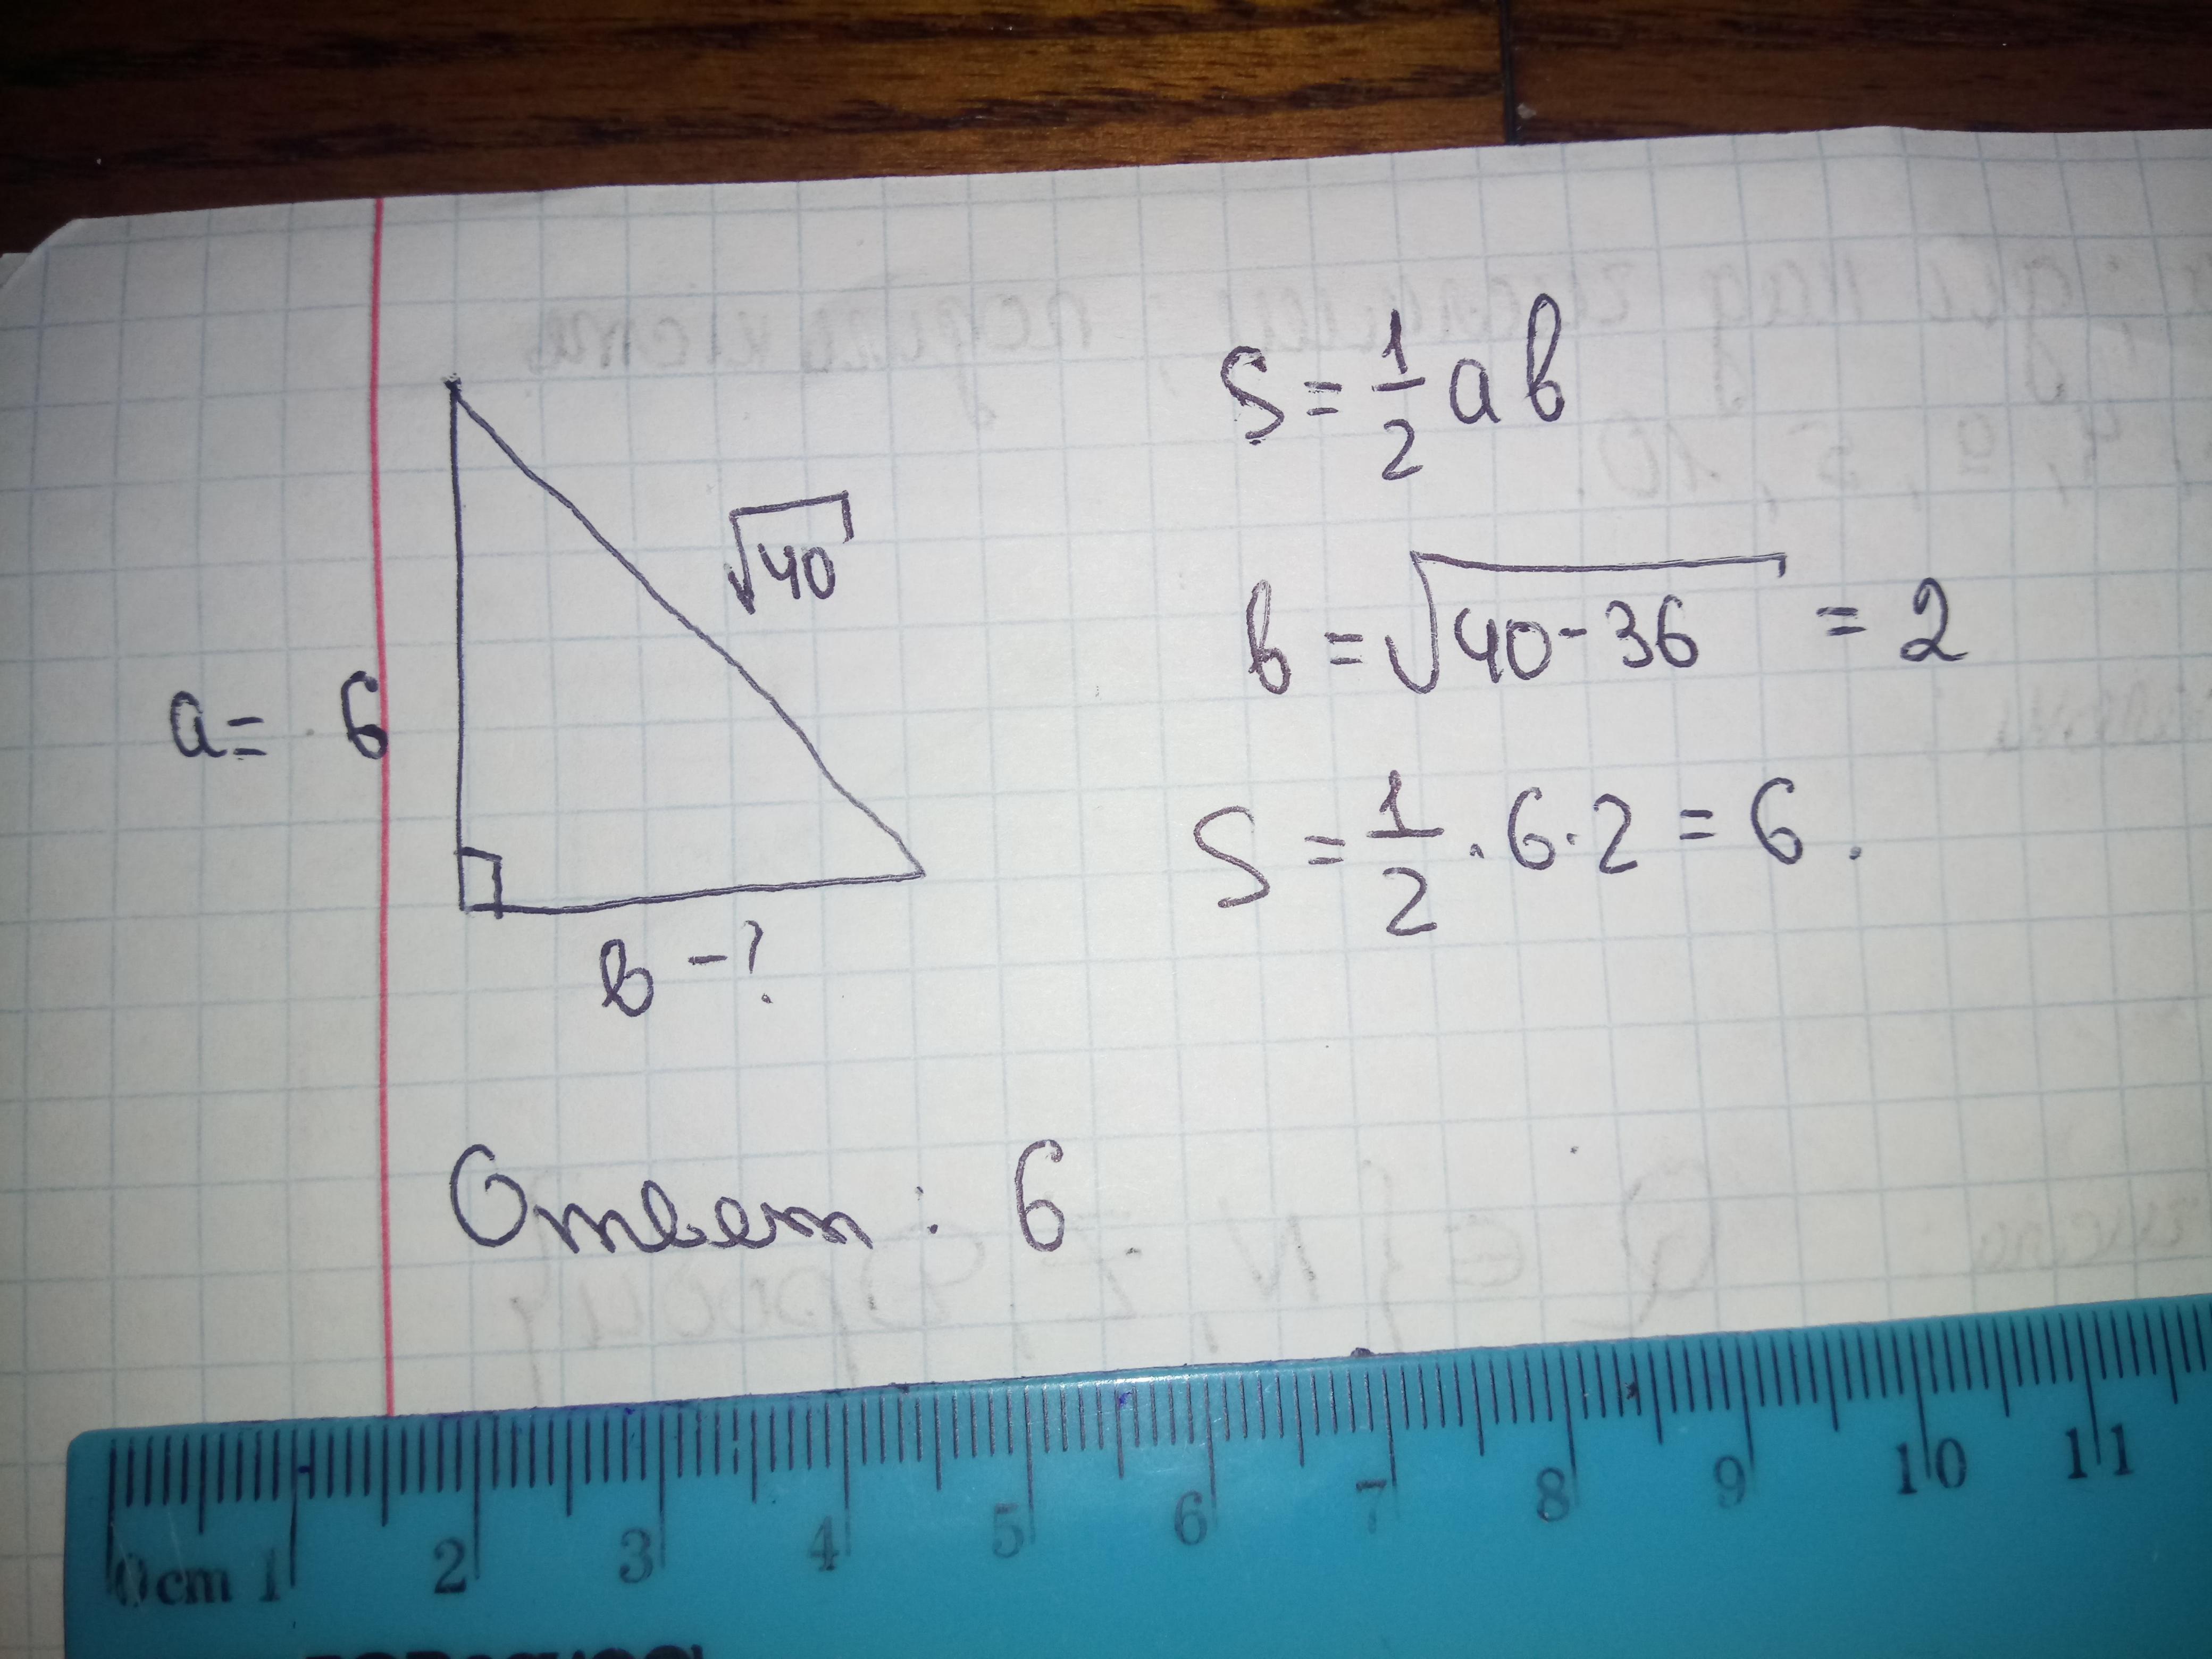 S = 1/2 ab
√40
b = √40-36 = 2
a = 6
S = 1/2 · 6 · 2 = 6.
в -?
Ответ: 6.
0cm 1 2 3 4 5 6 7 8 9 10 11